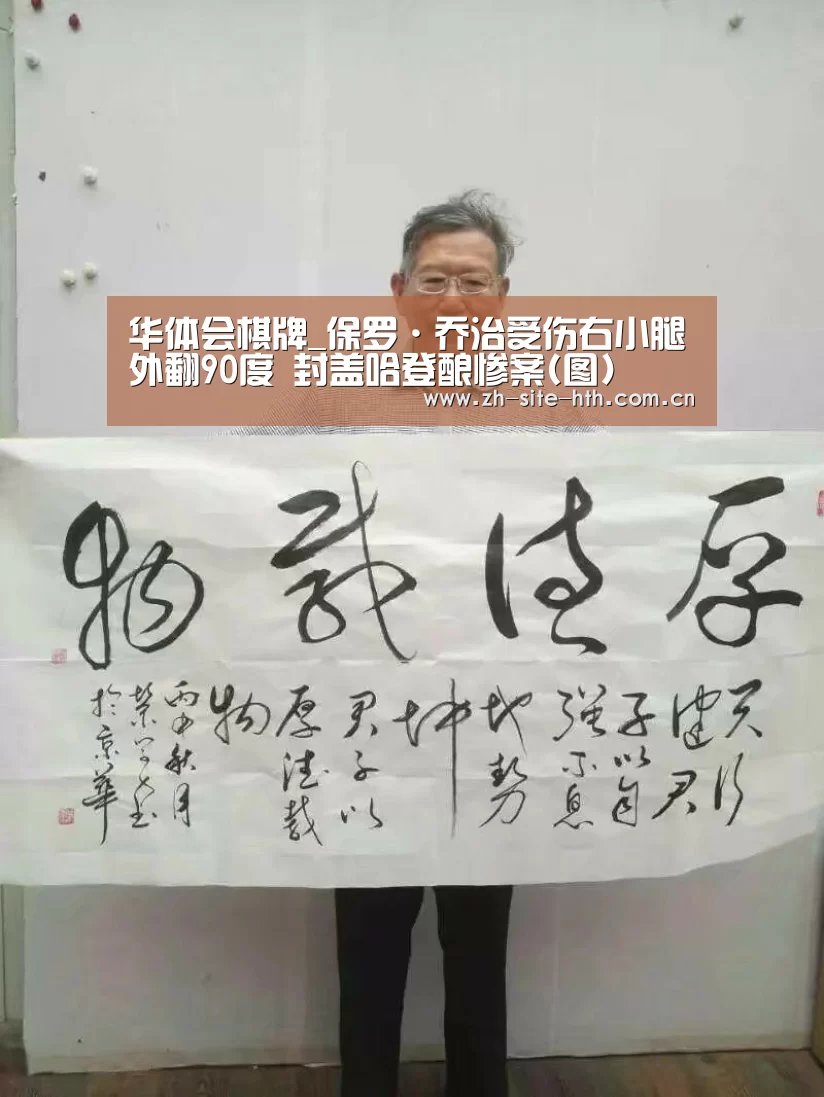 华体会棋牌_保罗·乔治受伤右小腿
外翻90度 封盖哈登酿惨案(图)
www.zh-site-hth.com.cn
厚德载物
天行
健君
子以自
强不息
地势
坤
君子以
厚德载
物
丙申秋月
於京華